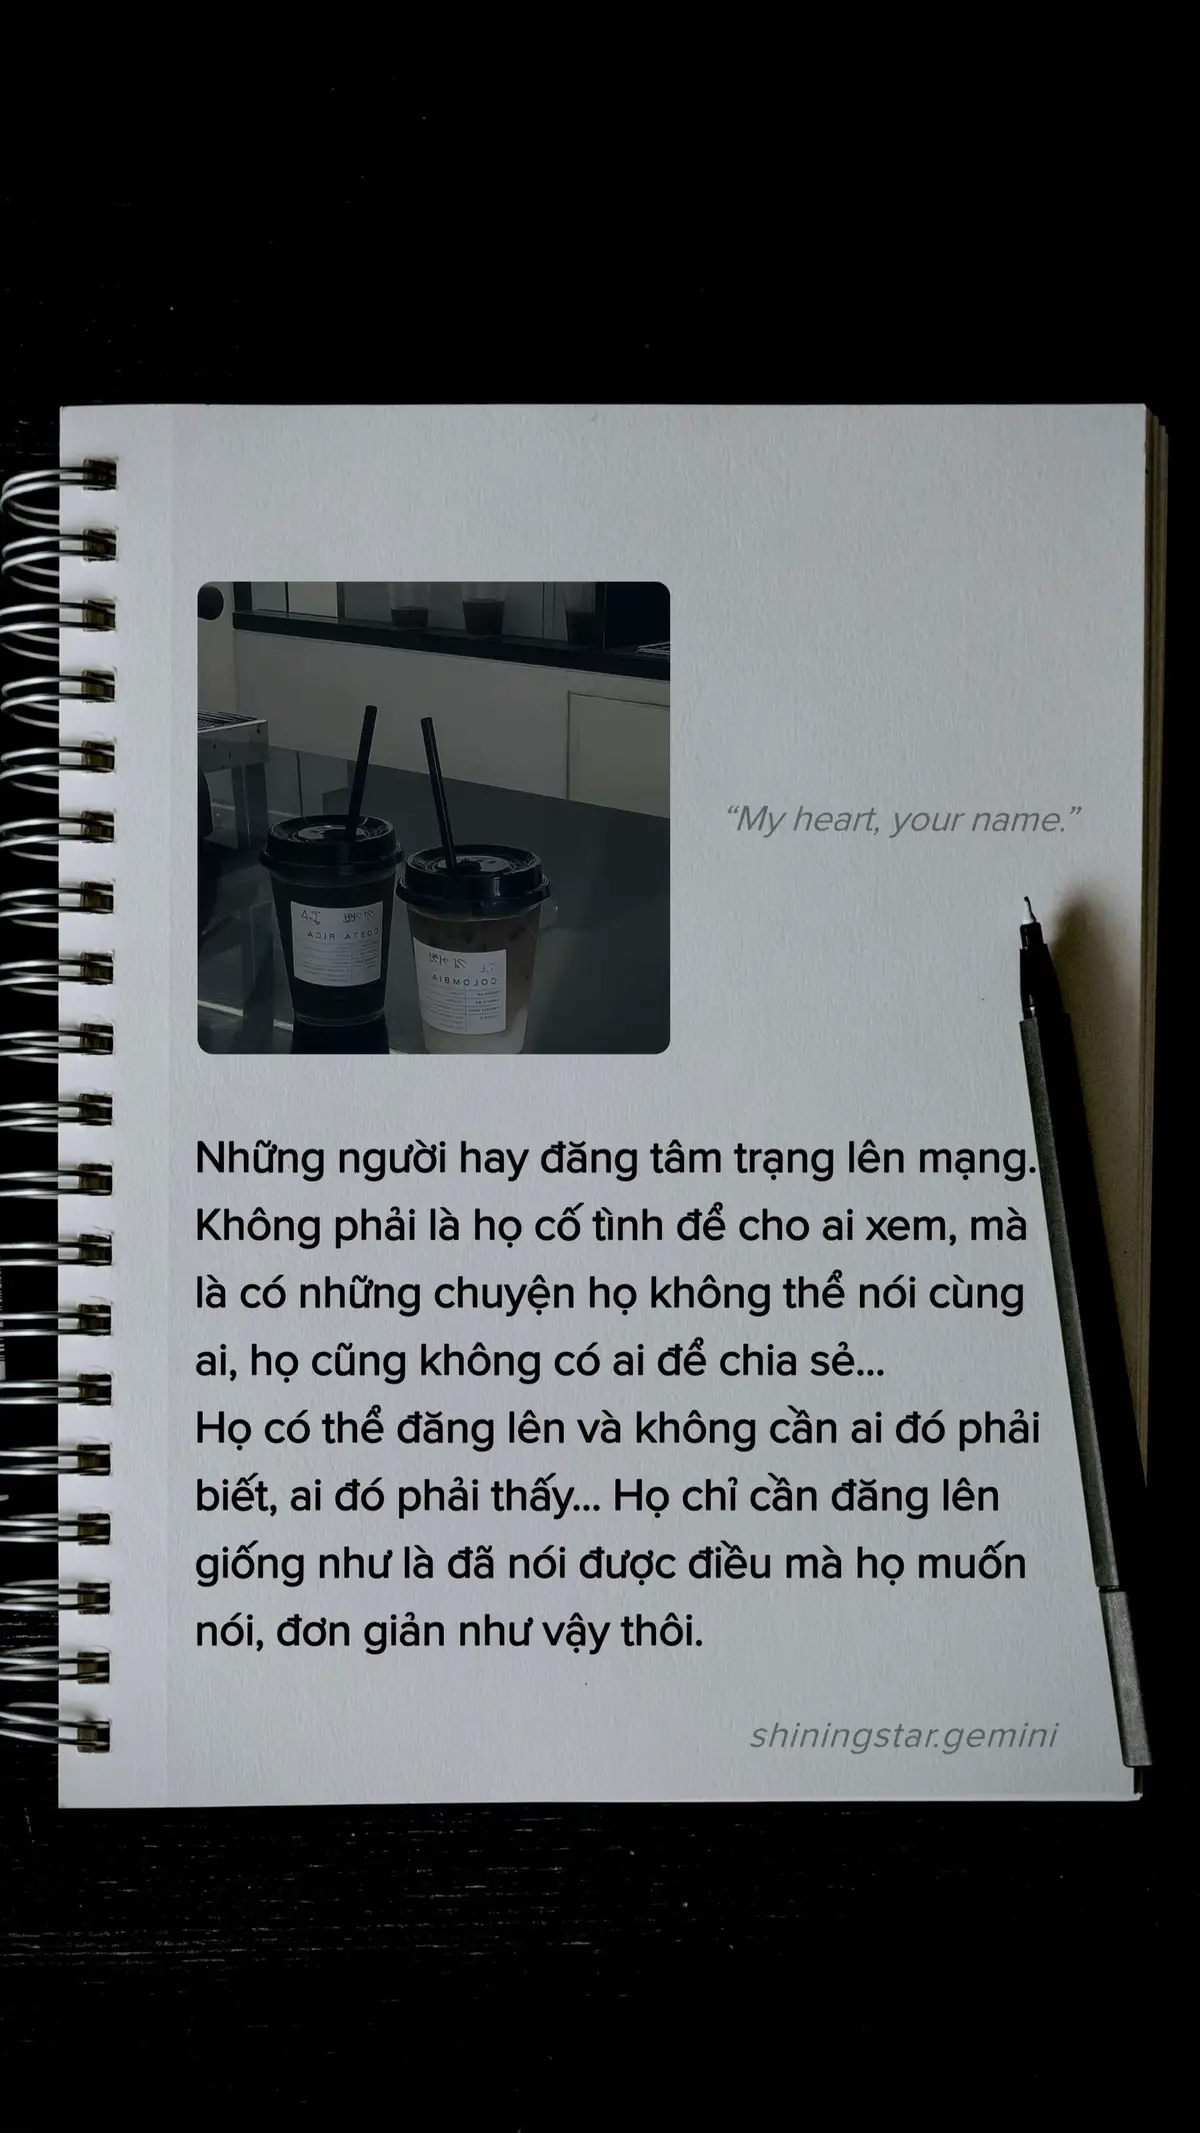 COSTA RICA
COLOMBIA
“My heart, your name.”
Những người hay đăng tâm trạng lên mạng.
Không phải là họ cố tình để cho ai xem, mà
là có những chuyện họ không thể nói cùng
ai, họ cũng không có ai để chia sẻ...
Họ có thể đăng lên và không cần ai đó phải
biết, ai đó phải thấy... Họ chỉ cần đăng lên
giống như là đã nói được điều mà họ muốn
nói, đơn giản như vậy thôi.
shiningstar.gemini